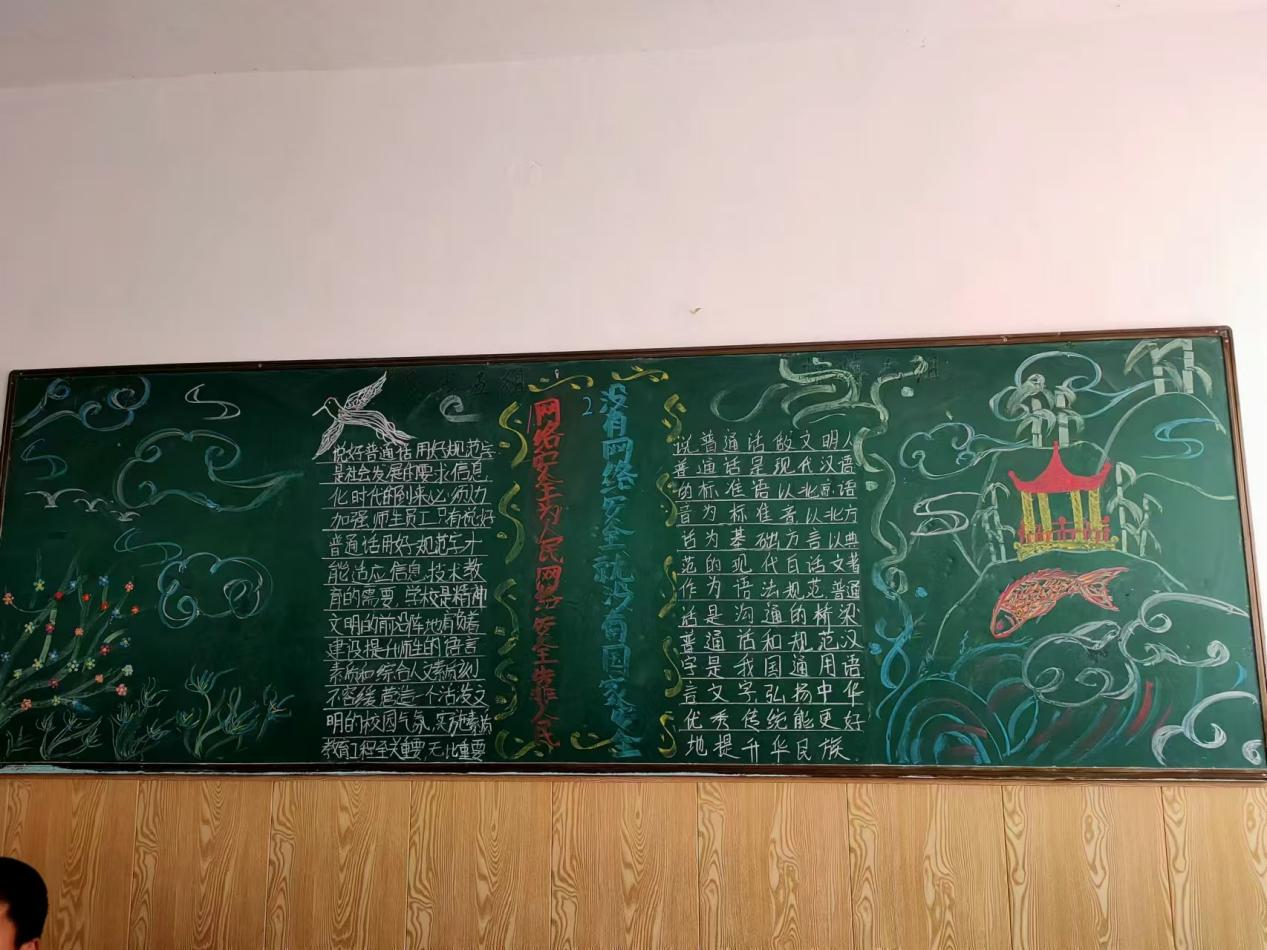 说好普通话用好规范字
是社会发展的要求信息
化时代的到来必须力
加强师生员工只有说好
普通话用好规范字才
能适应信息技术教
育的需要 学校是精神
文明的前沿阵地有责
建设提升师生的语言
素质和综合人文素质刻
不容缓营造一个活泼文
明的校园气氛实施素质
教育工程至关重要无比重要
网络安全为人民网络安全靠人民
2
没有网络安全就没有国家安全
说普通话做文明人
普通话是现代汉语
的标准语以北京语
音为标准音以北方
话为基础方言以典
范的现代白话文著
作为语法规范普通
话是沟通的桥梁
普通话和规范汉
字是我国通用语
言文字弘扬中华
优秀传统能更好
地提升华民族